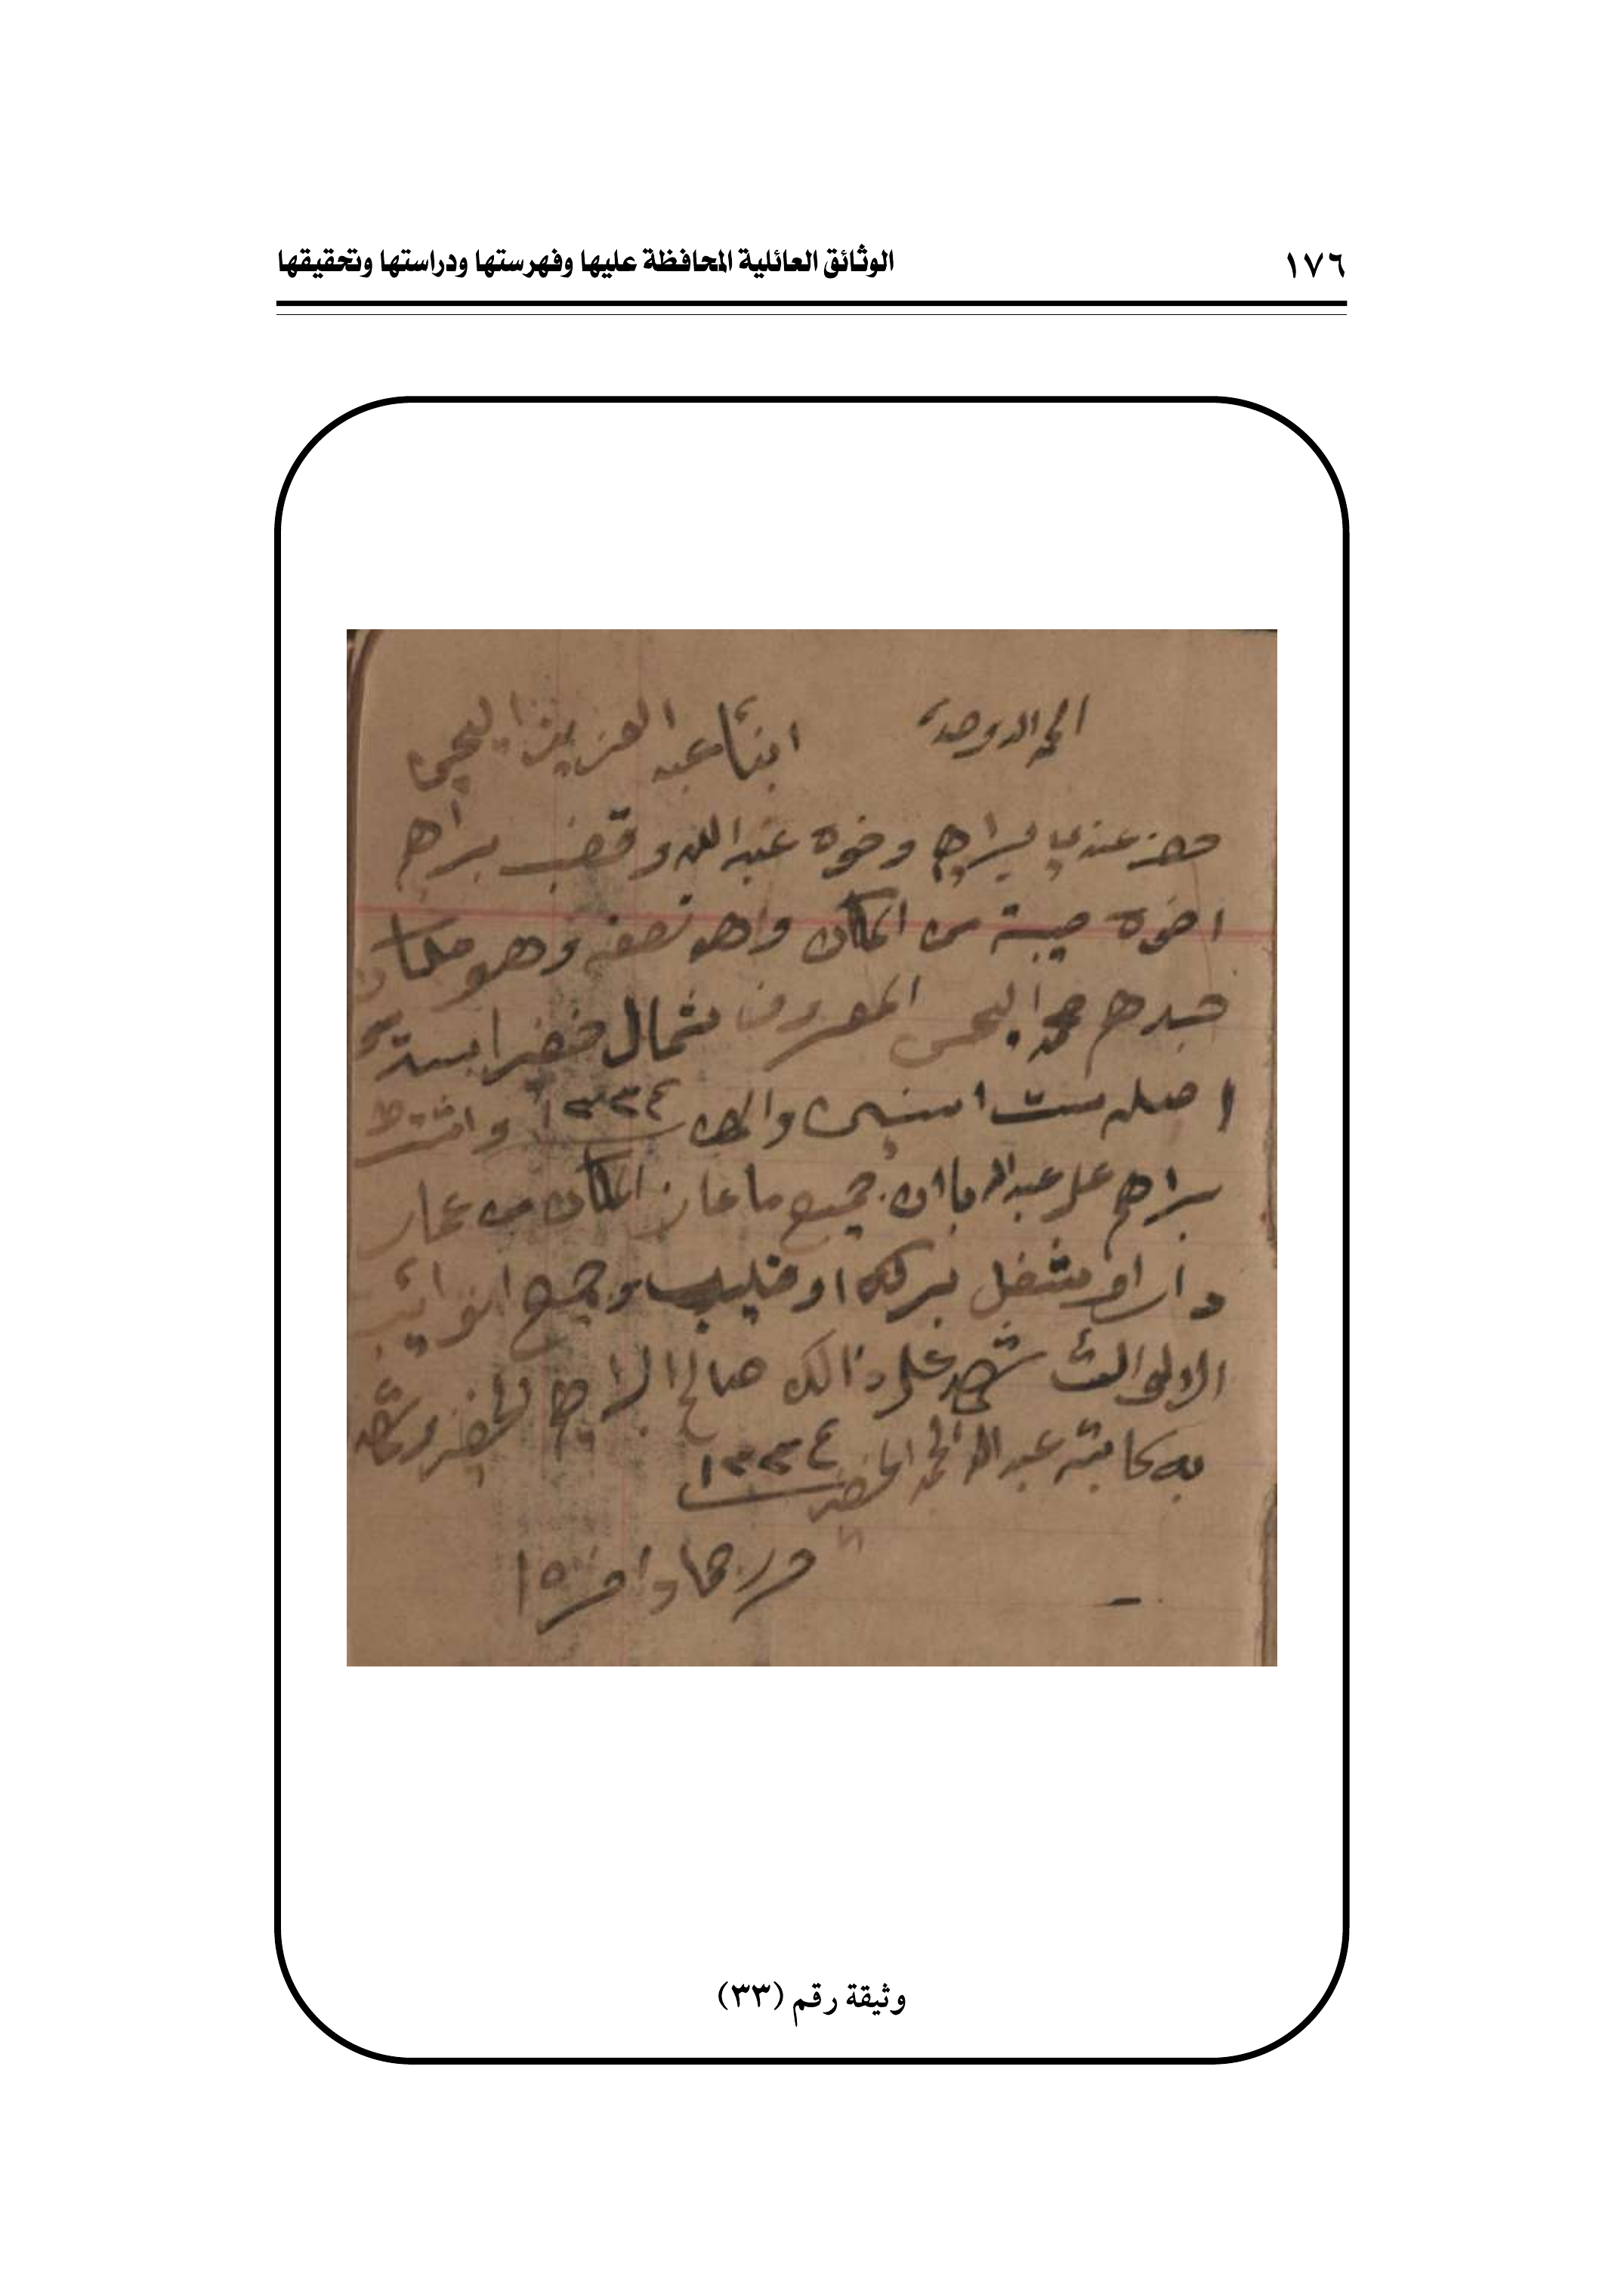 ١٧٦
الوثائق العائلية المحافظة عليها وفهرستها ودراستها وتحقيقها
الحمد الله وحده
ابنا عبد العزيز اليحيى
حضر عندي براهيم وخوه عبدالله وقضب براهيم
اخوه صيبة من المكان واهو نصفه وهو ملك
جدهم محمد اليحيى المعروف شمال خضيرا
اصله ست اسنين والى ١٣٣٤ واشترط
براهيم على عبدالله باان جميع ما عاز المكان من عمار
دار او شغل بركه او قليب وجميع النوائب
شهد على ذالك صالح البراهيم الخضر وشهد
به كاتبه عبدالله المحمد الخضر ١٣٣٤
وثيقة رقم (٣٣)